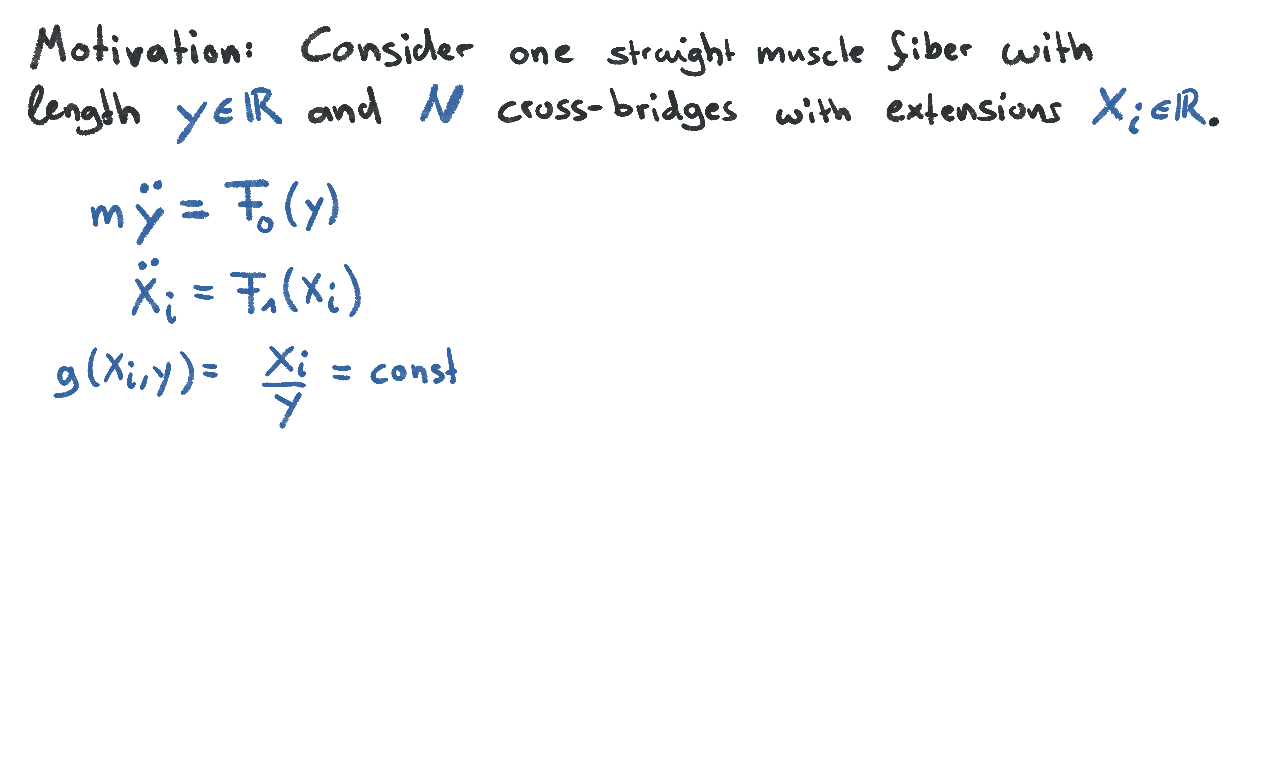 Motivation: Consider one straight muscle fiber with
length y∈ℝ and N cross-bridges with extensions Xᵢ∈ℝ.
mÿ = F₀(y)
Ẍᵢ = F₁(Xᵢ)
g(Xᵢ,y) = Xᵢ/y = const